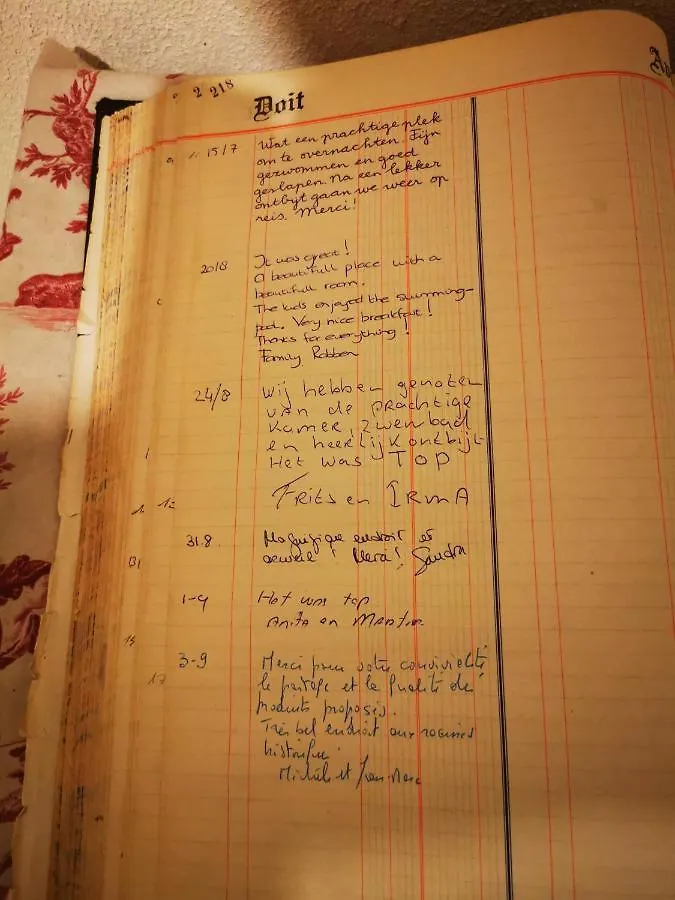 2 218
Doit
15/7 Wat een prachtige plek
om te overnachten. Fijn
gezwommen en goed
geslapen. Na een lekker
ontbijt gaan we weer op
reis. Merci!
20/8 It was great!
A beautifull place with a
beautifull room.
The kids enjoyed the swimming-
pool. Very nice breakfast!
Thanks for everything!
Family Robben
24/8 Wij hebben genoten
van de prachtige
kamer, zwembad
en heerlijk ontbijt
Het was TOP
12 Frits en IRMA
31.8 Magnifique endroit et
Merci! Sandra
1-9 Het was top
Anita en Martin
3-9 Merci pour votre convivialité
17 le partage et la qualité des
produits proposés.
Très bel endroit aux racines
historique.
Michèle et Jean-Marc